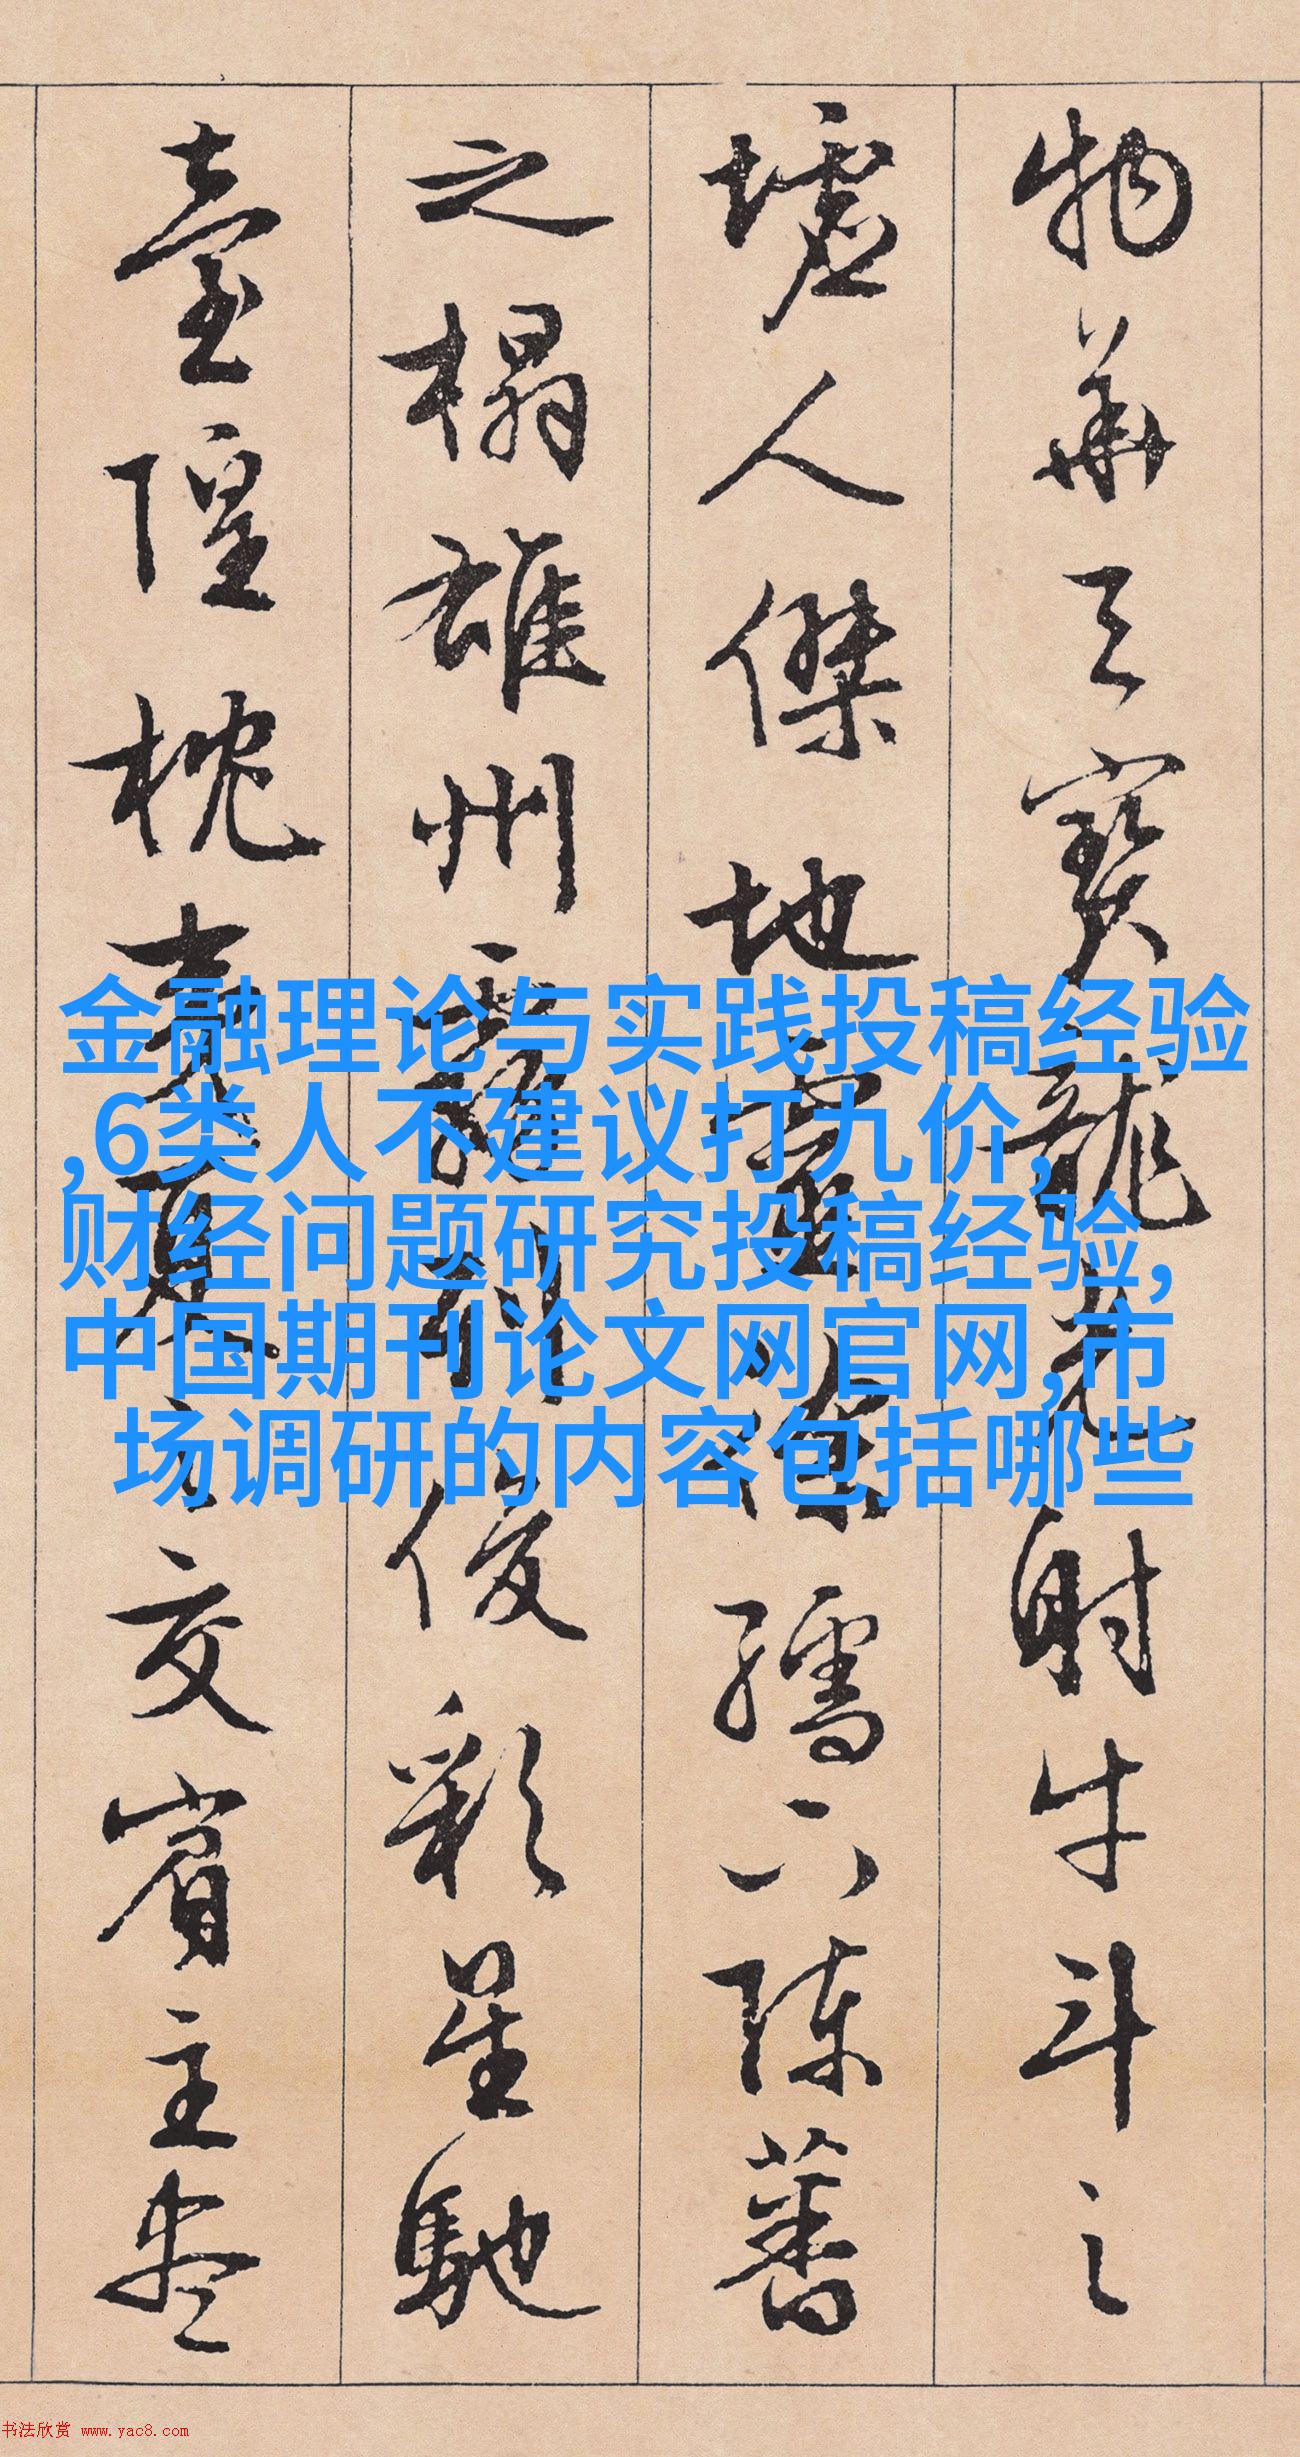 物華天寶龍光射牛斗之
墟人傑地靈徐孺下陳蕃
之榻雄州霧列俊彩星馳
臺隍枕夷夏之交賓主盡
金融理论与实践投稿经验
,6类人不建议打九价,
财经问题研究投稿经验,
中国期刊论文网官网,市
场调研的内容包括哪些
书法欣赏 www.yac8.com